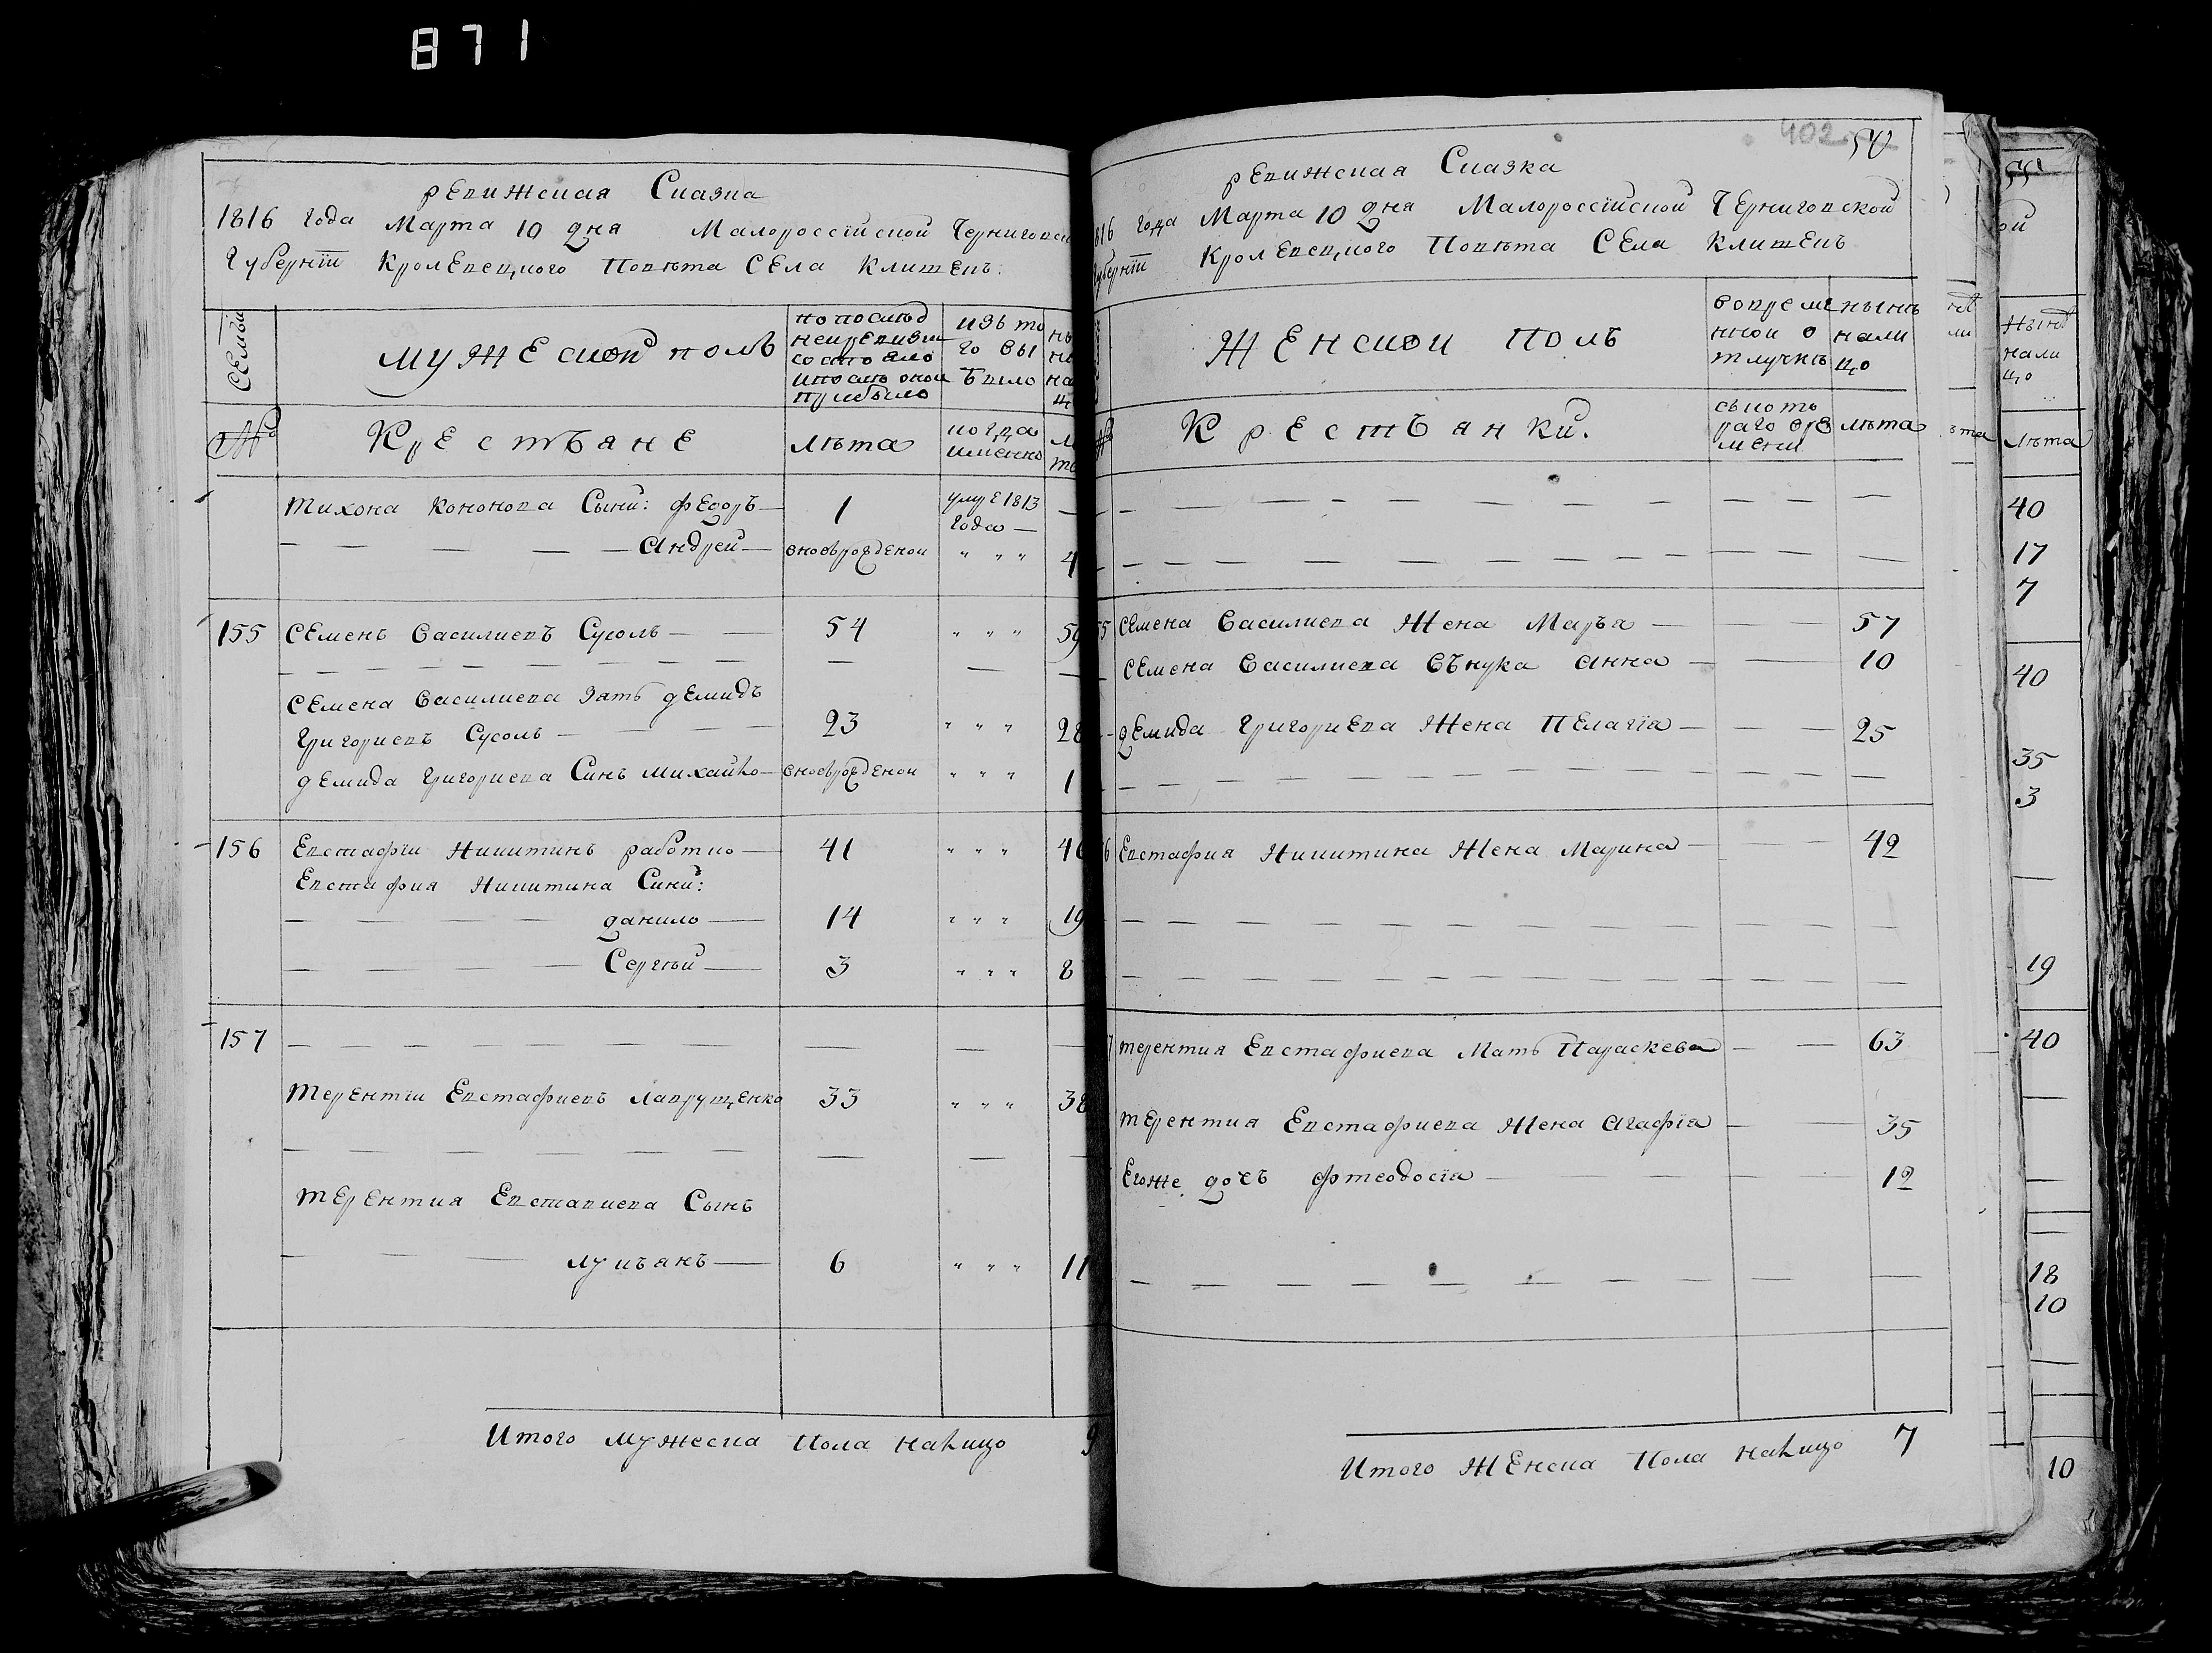 871
ревижская Сказка
1816 года Марта 10 дня Малороссійской Чернигов
Губерніи Кролевецкого Повѣта Села Клишекъ.
Семьи
Мужескои полъ
по послѣд
неи ревизи
состояло
и послѣ онои
прибыло
изъ то
го вы
было
№
Крестьяне
лѣта
когда
именно
Тихона Кононова Сыни: Федоръ — 1 умре 1813
года —
— — — — — Андрей — вноворожденои " " " 4
155 Семенъ Василиевъ Сусолъ — — 54 " " " 59
Семена Василиева Зять Демидъ
Григориевъ Сусолъ — — — 23 " " " 28
Демида Григориева Синъ Михайло — вноворожденои " " " 1
156 Евстафіи Никитинъ работко — 41 " " " 46
Евстафия Никитина Сини:
— — — — Данило — 14 " " " 19
— — — — Сергѣй — 3 " " " 8
157 — — — — — — —
Терентіи Евстафиевъ Лаврущенко 33 " " " 38
— — — — — — —
Терентия Евставиева Сынъ
— — — Лукъянъ — 6 " " " 11
Итого мужеска Пола налицо 9
402
54
ревижская Сказка
816 года Марта 10 дня Малороссійской Черниговской
Губерніи Кролевецкого Повѣта Села Клишекъ
Женскои полъ
вовреме
нной о
тлучкѣ
нынѣ
нали
цо
Крестьянки.
съкото
раго вре
мени
лѣта
55 Семена Василиева Жена Маръя — — — 57
Семена Василиева Вънука Анна — — 10
Демида Григориева Жена Пелагія — — — 25
6 Евстафия Никитина Жена Марина — — — 42
7 Терентия Евстафиева Мать Параскева — — 63
Терентия Евстафиева Жена Агафія — — 35
Егоже дочъ Фтеодосія — — — 12
Итого Женска Пола налицо 7
55
ой
нынѣ
нали
цо
лѣта
40
17
7
40
35
3
19
40
18
10
10